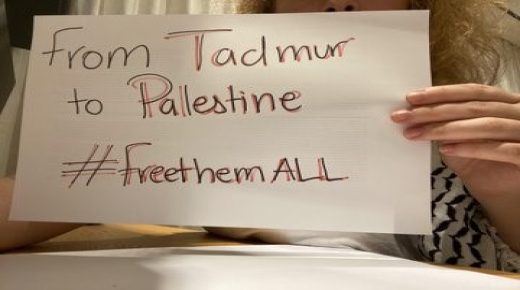 From Tadmur
to Palestine
#FreethemALL